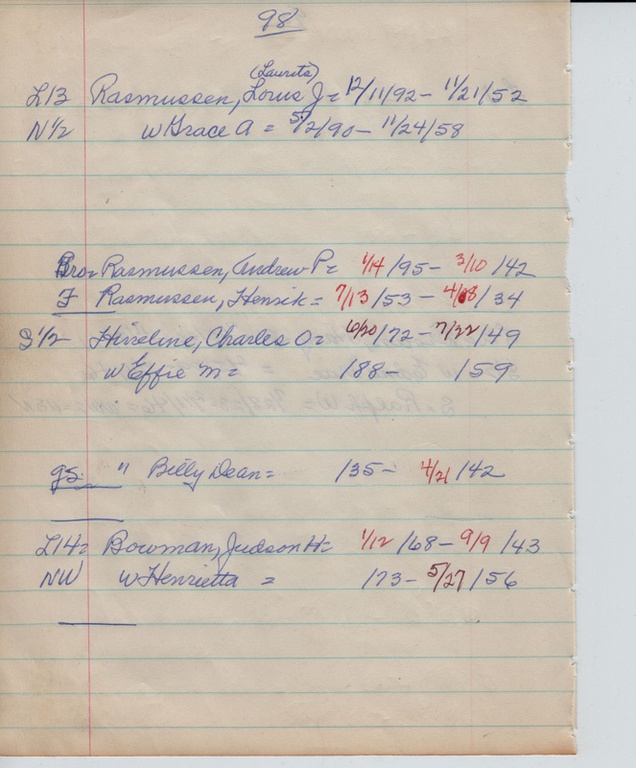 98
(Laurits)
L13 Rasmussen, Louis J = 12/11/92 - 11/21/52
N 1/2 w Grace A = 5/2/90 - 11/24/58
Bro = Rasmussen, Andrew P = 1/14/95 - 3/10/42
F Rasmussen, Henrik = 7/13/53 - 4/18/34
S 1/2 Hineline, Charles O = 6/20/72 - 7/22/49
w Effie M = /88 - /59
gs. " Billy Dean = /35 - 4/21/42
L14 = Bowman, Judson H = 1/12/68 - 9/9/43
NW w Henrietta = /73 - 5/27/56